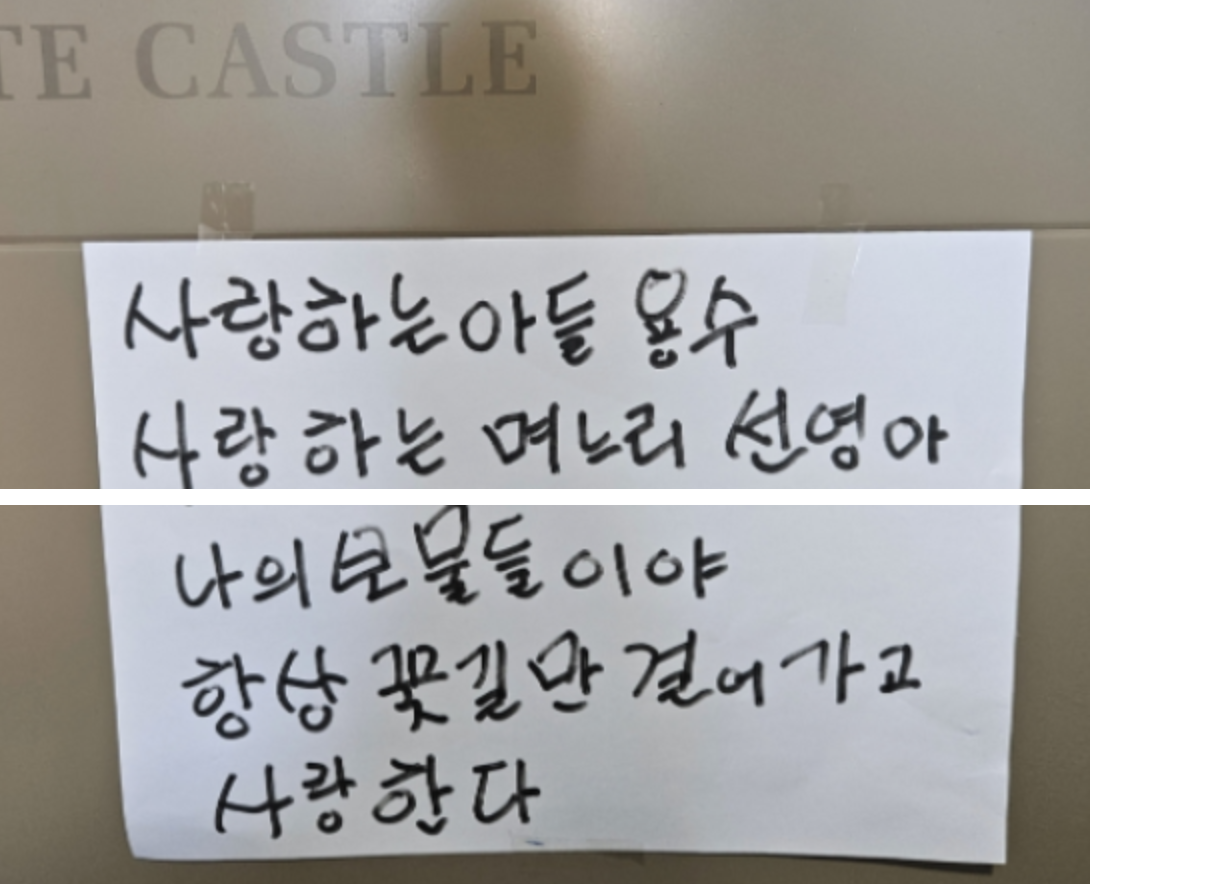 TE CASTLE
사랑하는아들 용수
사랑하는 며느리 선영아
나의보물들이야
항상 꽃길만 걸어가고
사랑한다